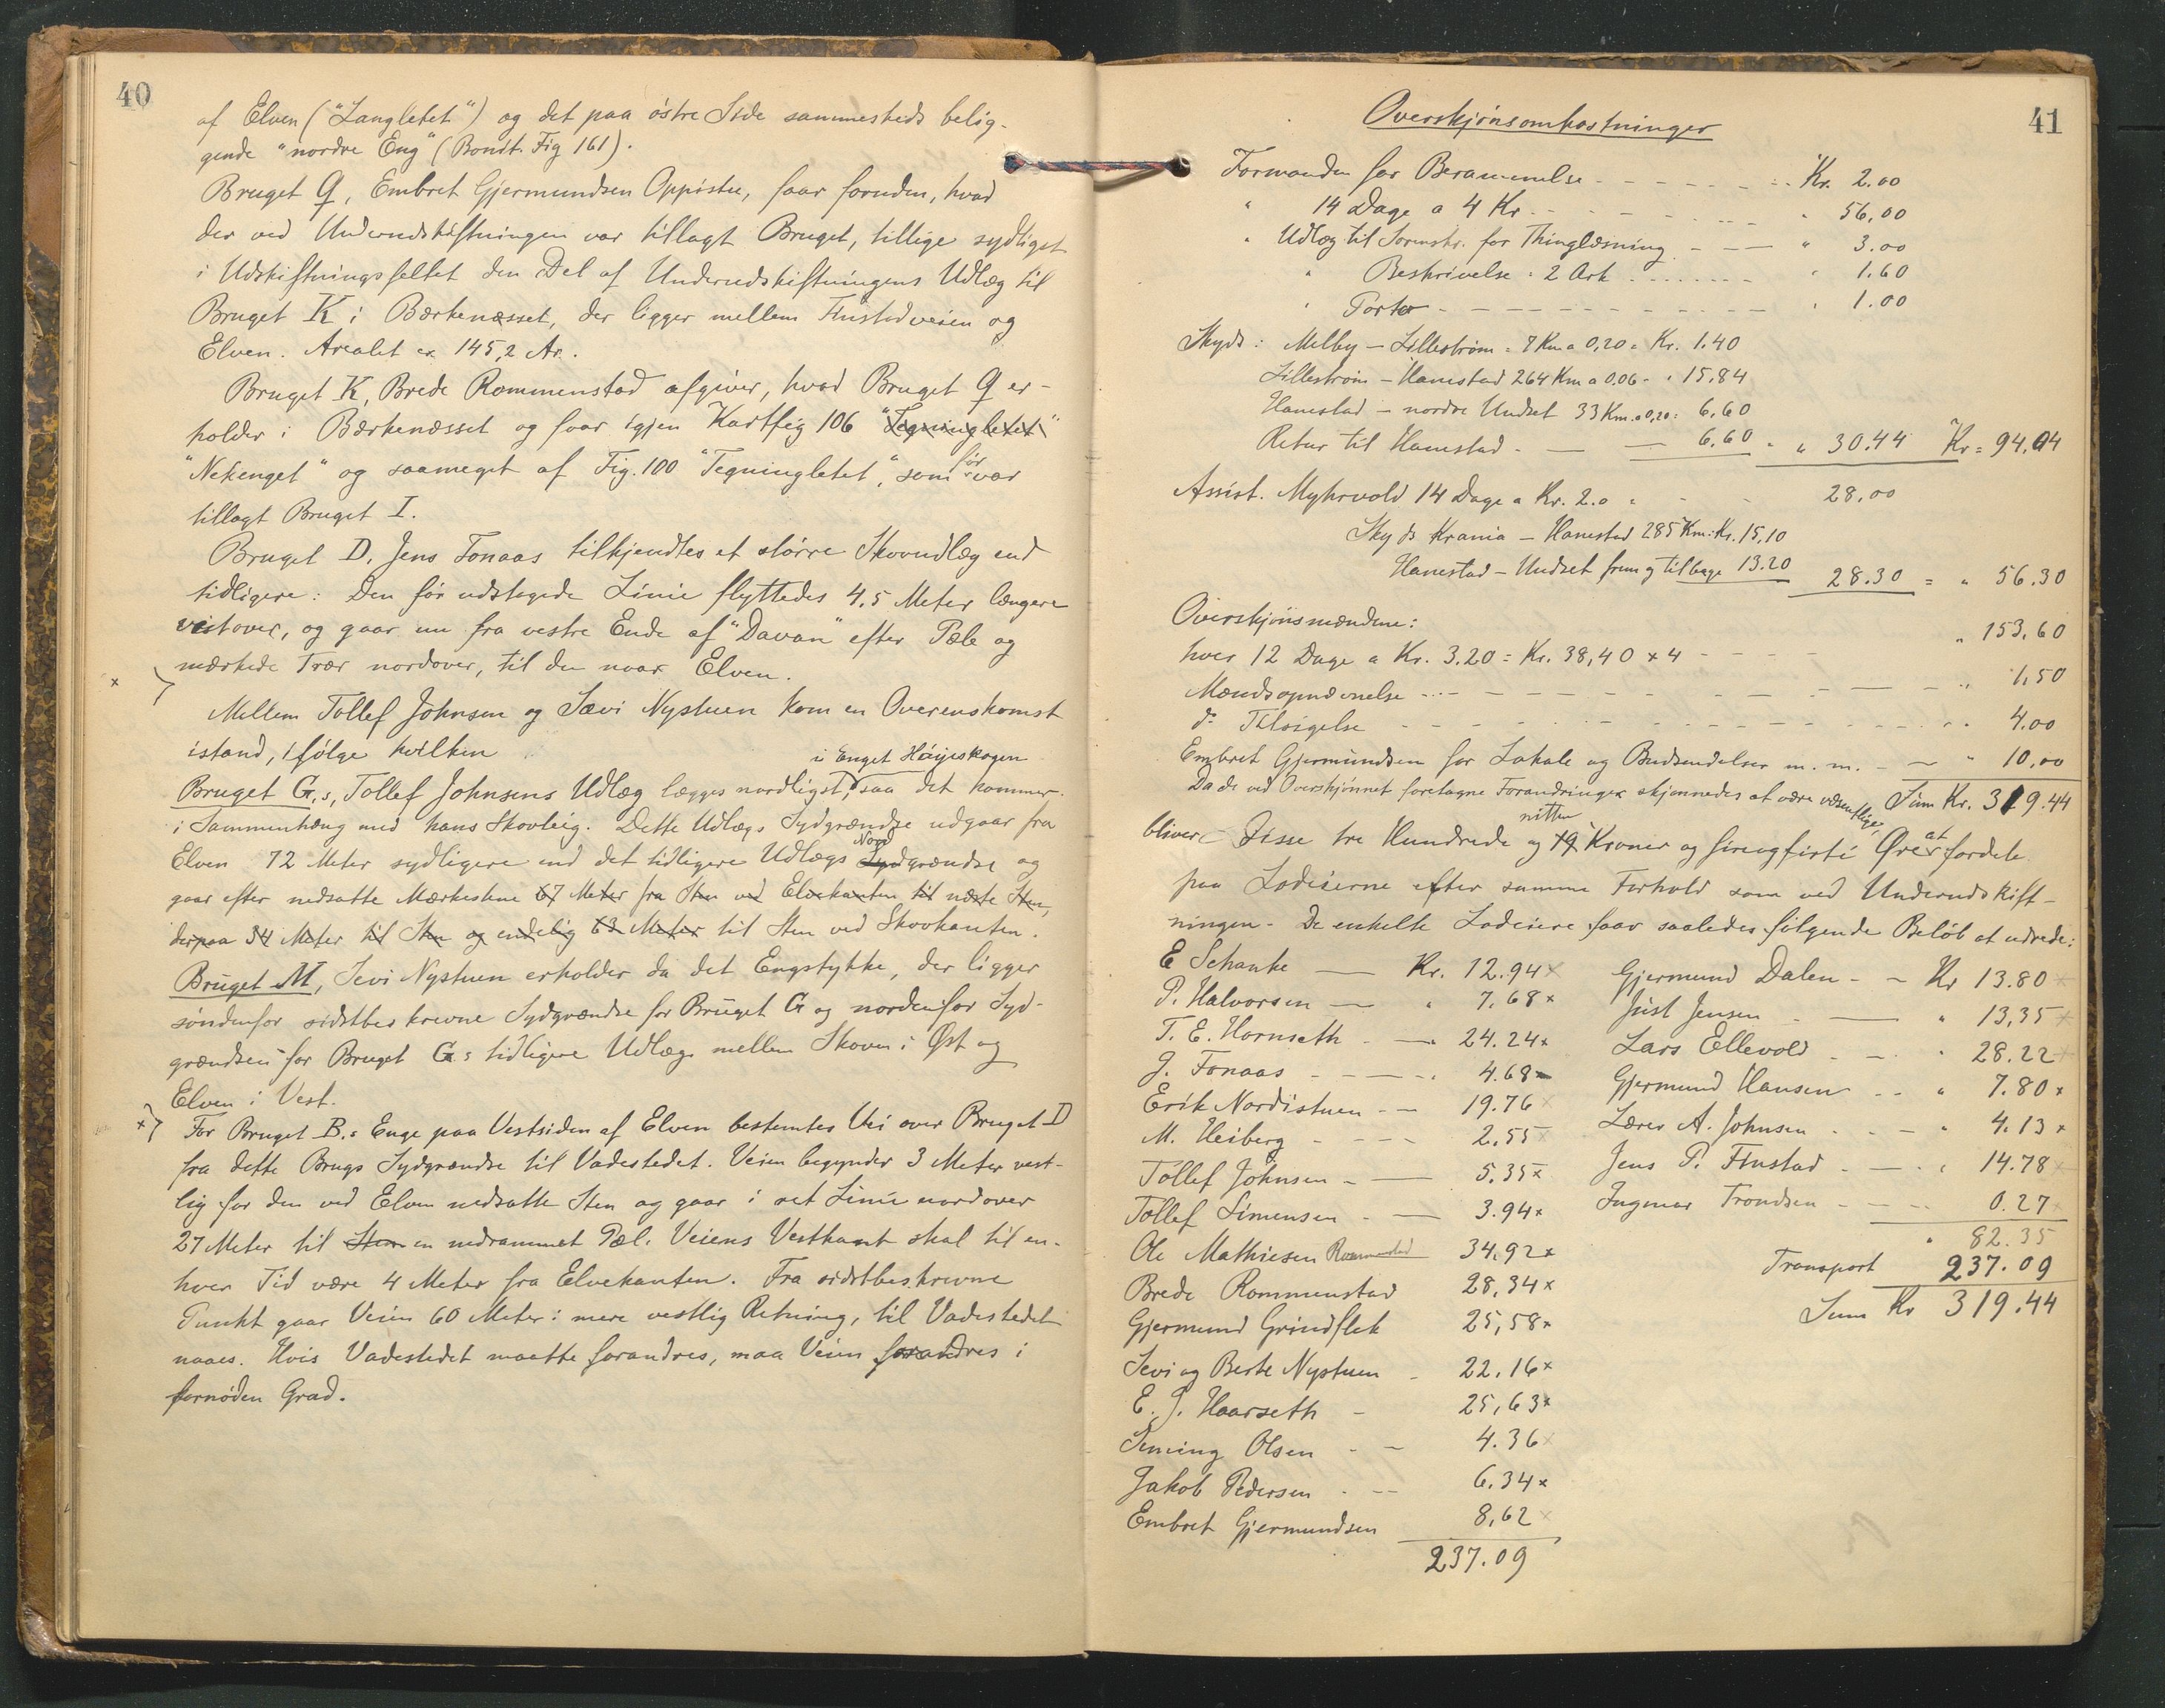 40
af Elven ("Langletet") og det paa østre Side sammesteds belig-
gende "nordre Eng" (Bonit. Fig 161).
Bruget Q, Embret Gjermundsen Oppistu, faar foruden, hvad
der ved Underudskiftningen var tillagt Bruget, tillige sydligst
i Udskiftningsfeltet den Del af Underudskiftningens Udlæg til
Bruget K i Bærkenæsset, der ligger mellem Finstadveien og
Elven. Arealet er 145,2 Ar.
Bruget K, Brede Rommenstad afgiver, hvad Bruget Q er-
holder i Bærkenæsset og faar igjen Kartfig 106 "Tegningletet"
"Nekenget" og saameget af Fig. 100 "Tegningletet", som før var
tillagt Bruget I.
Bruget D. Jens Fonaas tilkjendtes et større Skovudlæg end
tidligere: Den før udstagede Linie flyttedes 4,5 Meter længere
vestover, og gaar nu fra vestre Ende af "Davan" efter Pæle og
mærkede Trær nordover, til den naar Elven.
Mellem Tollef Johnsen og Sævi Nystuen kom en Overenskomst
istand, ifølge hvilken
i Enget Høijeskogen
Bruget G.s, Tollef Johnsens Udlæg lægges nordligst, saa det kommer
i Sammenhæng med hans Skovteig. Dette Udlægs Sydgrændse udgaar fra
Elven 72 Meter sydligere end det tidligere Udlægs Sydgrændse Nord og
gaar efter nedsatte Mærkestene 67 Meter fra Sten ved Elvekanten til næste Sten,
derpaa 34 Meter til Sten og endelig 63 Meter til Sten ved Skovkanten.
Bruget M, Sevi Nystuen erholder da det Engstykke, der ligger
søndenfor sidstbeskrevne Sydgrændse for Bruget G og nordenfor Syd-
grændsen for Bruget G:s tidligere Udlæg mellem Skoven i Øst og
Elven i Vest.
For Bruget B.s Enge paa Vestsiden af Elven bestemtes Vei over Bruget D
fra dette Brugs Sydgrændse til Vadestedet. Veien begynder 3 Meter vest-
lig for den ved Elven nedsatte Sten og gaar i ret Linie nordover
27 Meter til Sten en nedrammet Pæl. Veiens Vestkant skal til en-
hver Tid være 4 Meter fra Elvekanten. Fra sidstbeskrevne
Punkt gaar Veien 60 Meter i mere vestlig Retning, til Vadestedet
naaes. Hvis Vadestedet maatte forandres, maa Veien forandres i
fornøden Grad.
41
Overskjønsomkostninger
Formanden for Berammelse - - - Kr. 2.00
" 14 Dage a 4 Kr. - - - " 56,00
" Udlæg til Sorenskr. for Thinglæsning - - " 3.00
" Beskrivelse: 2 Ark - - - " 1.60
" Porto - - - " 1.00
Skyds: Melby - Lillestrøm = 7 Km a 0,20 = Kr. 1.40
Lillestrøm - Hanestad 264 Km a 0.06 - " 15,84
Hanestad - nordre Undset 33 Km. a 0,20 = 6,60
Retur til Hanestad - - - 6.60 = " 30.44 Kr = 94,04
Assist. Myhrvold 14 Dage a Kr. 2.0 = 28,00
Skyds Krania - Hanestad 285 Km: Kr. 15,10
Hanestad - Undset frem og tilbage 13.20 28.30 = " 56.30
Overskjønsmændene:
hver 12 Dage a Kr. 3.20 = Kr. 38,40 x 4 - - - " 153,60
Mændsopnævnelse - - - " 1,50
do Tilsigelse - - - " 4.00
Embret Gjermundsen for Lokale og Budsendelser m. m. - - " 10,00
Da de ved Overskjønnet foretagne Forandringer skjønnedes at være væsentlige, Sum Kr. 319.44
bliver Disse tre Hundrede og 19 nitten Kroner og fireogfirti Ører at fordele
paa Lodeierne efter samme Forhold som ved Underudskift-
ningen. De enkelte Lodeiere faar saaledes følgende Beløb at udrede:
E Schanke - Kr. 12.94 x
P. Halvorsen - " 7.68 x
T. E. Hornseth - 24.24 x
J. Fonaas - - - 4.68
Erik Nordistuen - - 19.76 x
M. Heiberg - - - 2,55 x
Tollef Johnsen - - 5.35 x
Tollef Simensen - - 3.94 x
Ole Mathiesen Rommenstad 34,92 x
Brede Rommenstad 28,34 x
Gjermund Grindflek 25,58 x
Sevi og Berte Nystuen - 22.16 x
E. J. Haarseth - 25,63 x
Seming Olsen - - 4.36 x
Jakob Pedersen - - 6.34 x
Embret Gjermundsen 8,62 x
237.09
Gjermund Dalen - - Kr 13.80 x
Just Jensen - - " 13,35 x
Lars Ellevold - - " 28.22 x
Gjermund Hansen - - " 7.80 x
Lærer A. Johnsen - - " 4.13 x
Jens P. Finstad - - " 14.78 x
Ingmar Trondsen - - 0.27 x
" 82.35
Transport 237.09
Sum Kr 319.44